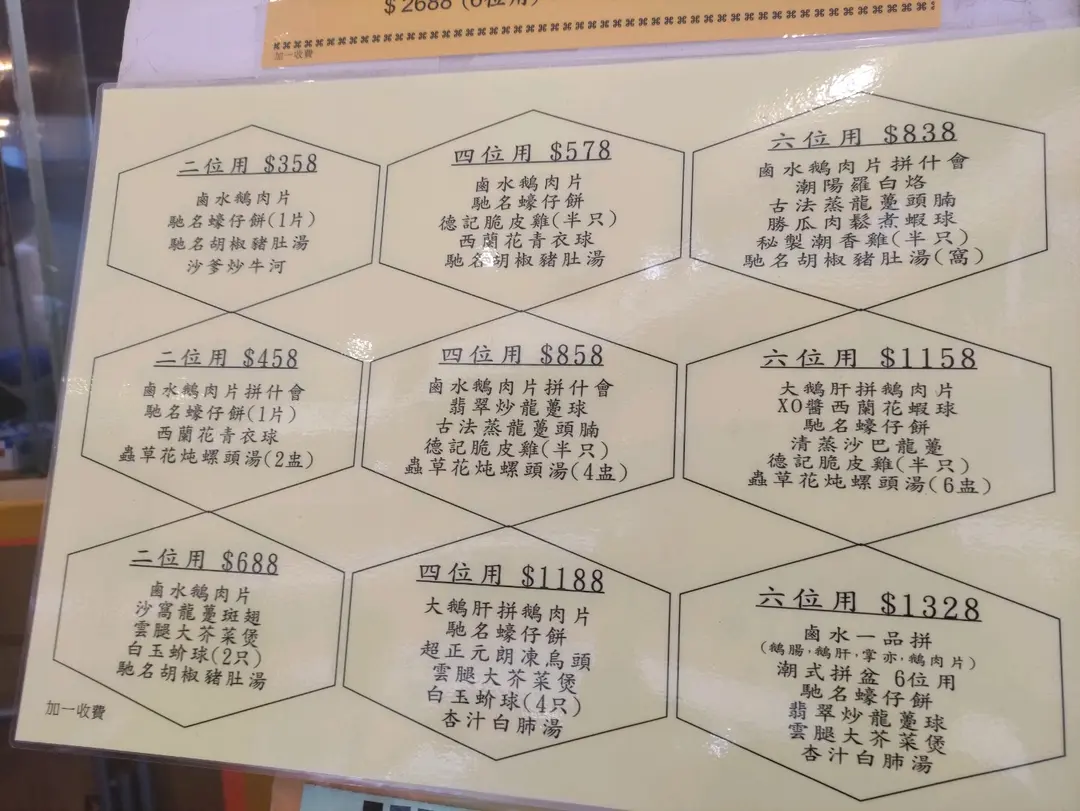 $2688(6位用)
加一收費
二位用 $358
鹵水鵝肉片
馳名蠔仔餅(1片)
馳名胡椒豬肚湯
沙爹炒牛河
四位用 $578
鹵水鵝肉片
馳名蠔仔餅
德記脆皮雞(半只)
西蘭花青衣球
馳名胡椒豬肚湯
六位用 $838
鹵水鵝肉片拼什會
潮陽羅白烙
古法蒸龍躉頭腩
勝瓜肉鬆煮蝦球
秘製潮香雞(半只)
馳名胡椒豬肚湯(窩)
二位用 $458
鹵水鵝肉片拼什會
馳名蠔仔餅(1片)
西蘭花青衣球
蟲草花炖螺頭湯(2盅)
四位用 $858
鹵水鵝肉片拼什會
翡翠炒龍躉球
古法蒸龍躉頭腩
德記脆皮雞(半只)
蟲草花炖螺頭湯(4盅)
六位用 $1158
大鵝肝拼鵝肉片
XO醬西蘭花蝦球
馳名蠔仔餅
清蒸沙巴龍躉
德記脆皮雞(半只)
蟲草花炖螺頭湯(6盅)
二位用 $688
鹵水鵝肉片
沙窩龍躉斑翅
雲腿大芥菜煲
白玉蚧球(2只)
馳名胡椒豬肚湯
四位用 $1188
大鵝肝拼鵝肉片
馳名蠔仔餅
超正元朗凍烏頭
雲腿大芥菜煲
白玉蚧球(4只)
杏汁白肺湯
六位用 $1328
鹵水一品拼
(鵝腸,鵝肝,掌亦,鵝肉片)
潮式拼盆 6位用
馳名蠔仔餅
翡翠炒龍躉球
雲腿大芥菜煲
杏汁白肺湯
加一收費